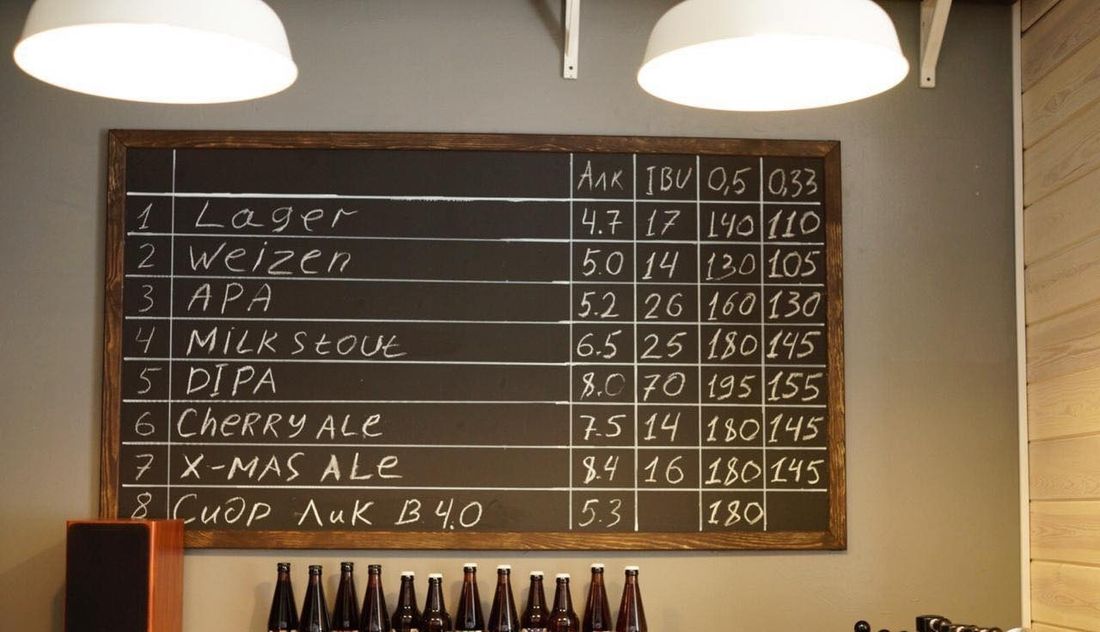 Алк IBU 0,5 0,33
1 Lager 4.7 17 140 110
2 Weizen 5.0 14 130 105
3 APA 5.2 26 160 130
4 MiLK Stout 6.5 25 180 145
5 DIPA 8.0 70 195 155
6 CheRRy ALe 7.5 14 180 145
7 X-MAS ALe 8.4 16 180 145
8 Сидр Лик В 4.0 5.3 180